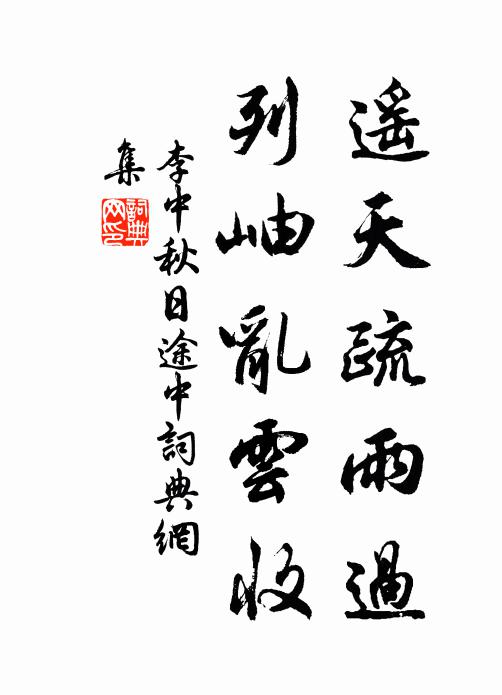 遥天疏雨過
列岫亂雲收
李中秋日途中詞典網
集
詞典
网印